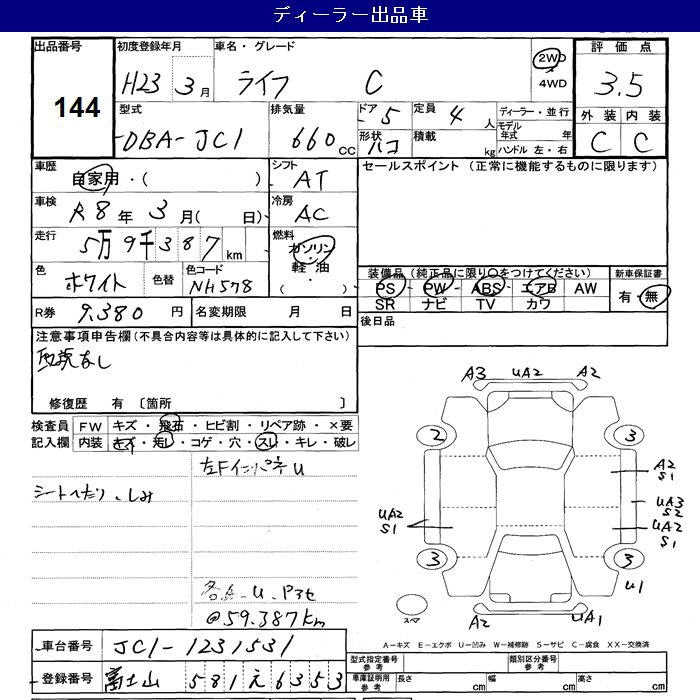 ディーラー出品車
出品番号 144
初度登録年月 H23 3月
車名・グレード ライフ C
2WD
4WD
評価点 3.5
外装 内装
C C
型式 DBA-JC1
排気量 660cc
ドア 5
形状 ハコ
定員 4人
積載 kg
ディーラー・並行
モデル年式 年
ハンドル 左・右
車歴 自家用・( )
シフト AT
セールスポイント (正常に機能するものに限ります)
車検 R8年 3月( 日)
冷房 AC
走行 5万9千387km
燃料 ガソリン・軽油・( )
色 ホワイト 色替 色コード NH578
装備品 (純正品に限り○をつけてください)
PS PW ABS エアB AW
SR ナビ TV カワ
新車保証書
有・無
R券 9,380円
名変期限 月 日
後日品
注意事項申告欄(不具合内容等は具体的に記入して下さい)
取説なし
修復歴 有 〔箇所 〕
検査員記入欄
FW キズ・飛石・ヒビ割・リペア跡・×要
内装 キズ・汚レ・コゲ・穴・スレ・キレ・破レ
左Fインパネ U
シートへたり、しみ
各A・U・P3セ
@59.387km
A3 UA2 A2
2 3
A2
S1
UA3
S2
UA2
S1
UA2
S1
3 3
U1
スペア
A2 UA1
A-キズ E-エクボ U-凹み W-補修跡 S-サビ C-腐食 XX-交換済
車台番号 JC1-1231531
登録番号 富士山 581 え 6353
型式指定番号 参考
類別区分番号 参考
車庫証明用 参考
長さ cm 幅 cm 高さ cm